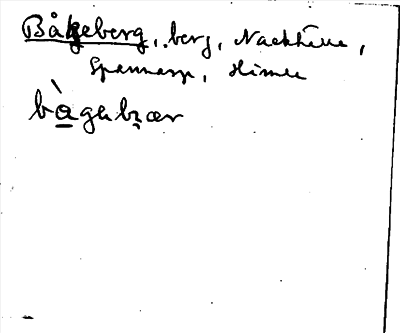 Bågeberg, berg, Nackhälle,
Spannarp, Himle
bàgabzær